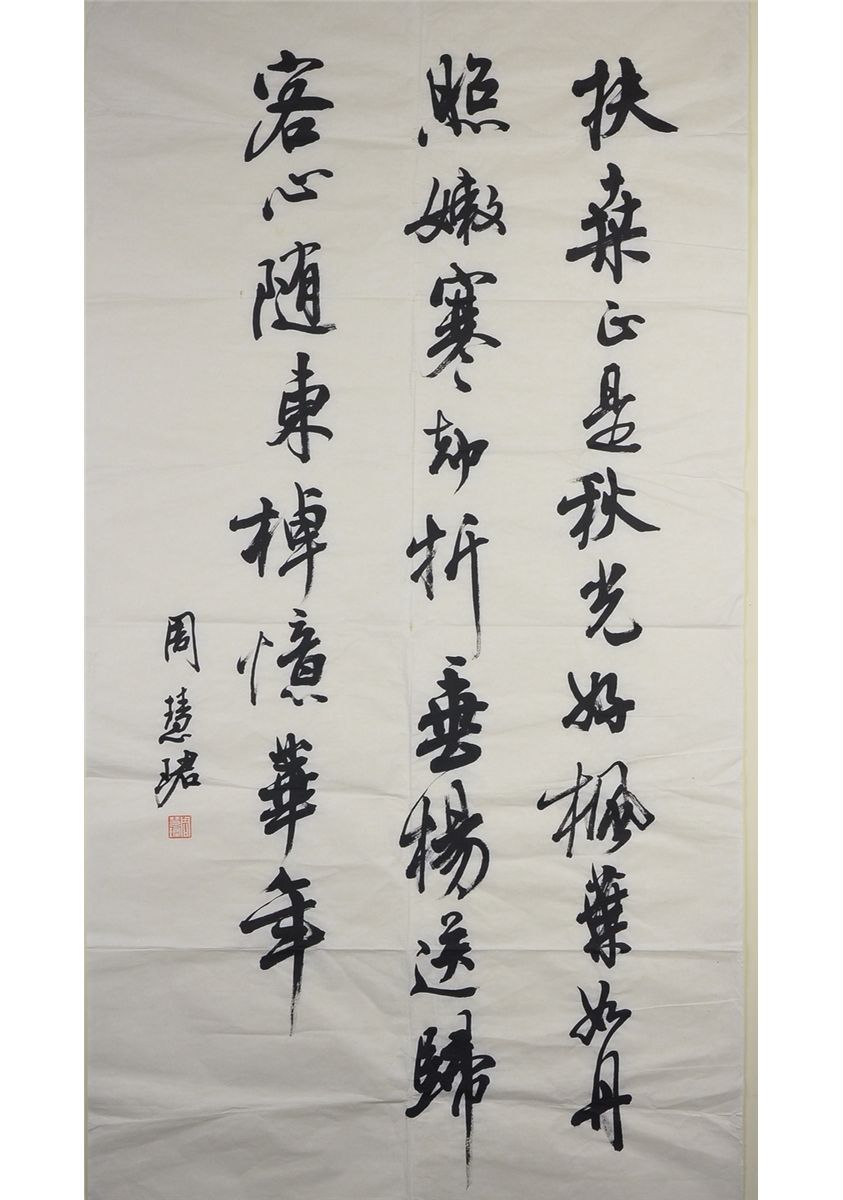 扶桒正是秋光好楓葉如丹
照嫰寒却折垂楊送歸
客心随東棹憶華年
周慧珺